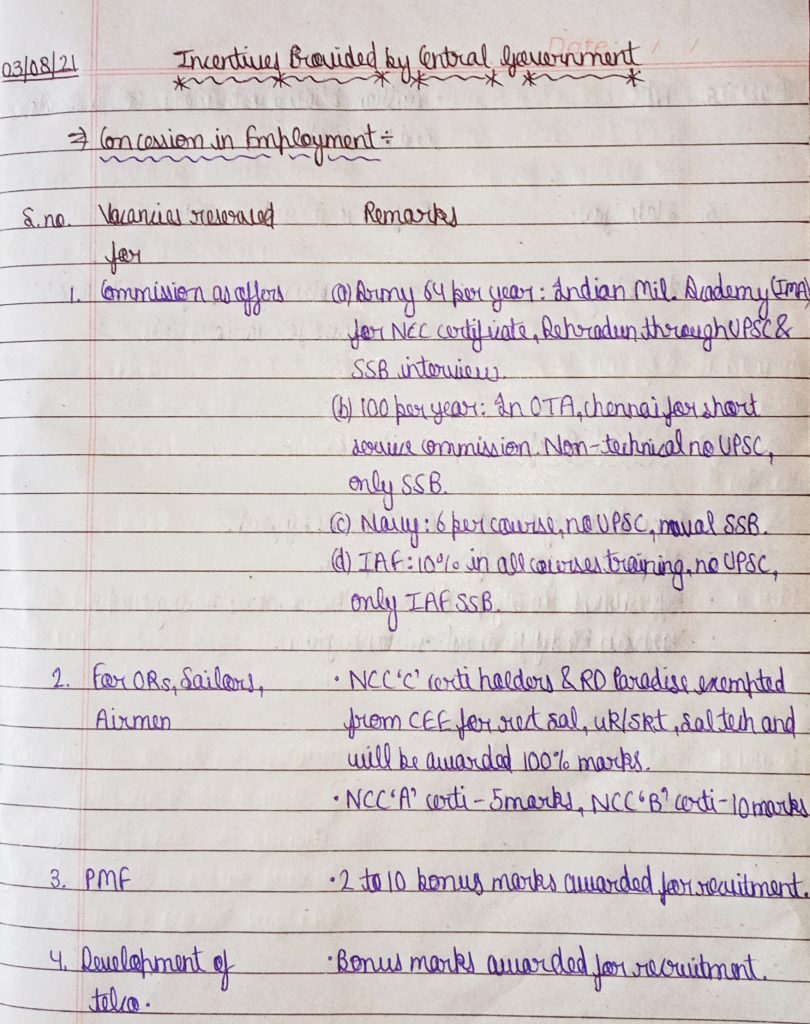 Date / /
03/08/21
Incentives Provided by Central Government
⇒ Concession in Employment ÷
S.no. Vacancies reserved for Remarks
1. Commission as offers (a) Army 64 per year: Indian Mil. Academy (IMA)
for NCC certificate, Dehradun, through UPSC &
SSB interview.
(b) 100 per year: In OTA, chennai for short
service commission. Non-technical no UPSC,
only SSB.
(c) Navy: 6 per course, no UPSC, naval SSB.
(d) IAF: 10% in all courses training, no UPSC,
only IAF SSB.
2. For ORs, Sailors, • NCC 'C' certi holders & RD Paradise exempted
Airmen from CEE for rect sal, UR/SRT, sal tech and
will be awarded 100% marks.
• NCC 'A' certi - 5 marks, NCC 'B' certi - 10 marks
3. PMF • 2 to 10 bonus marks awarded for recuitment.
4. Development of • Bonus marks awarded for recruitment.
telco.